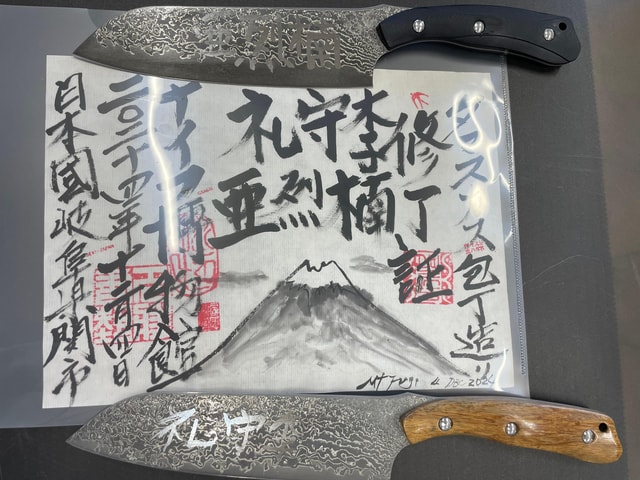 亜烈楠
スカス包丁造り
修了証
李楠
守烈
礼亜
ナイフ博物館
二〇二十四年十二月四日
日本國岐阜県関市
Mt Fuji 4 Dec 2024
礼守